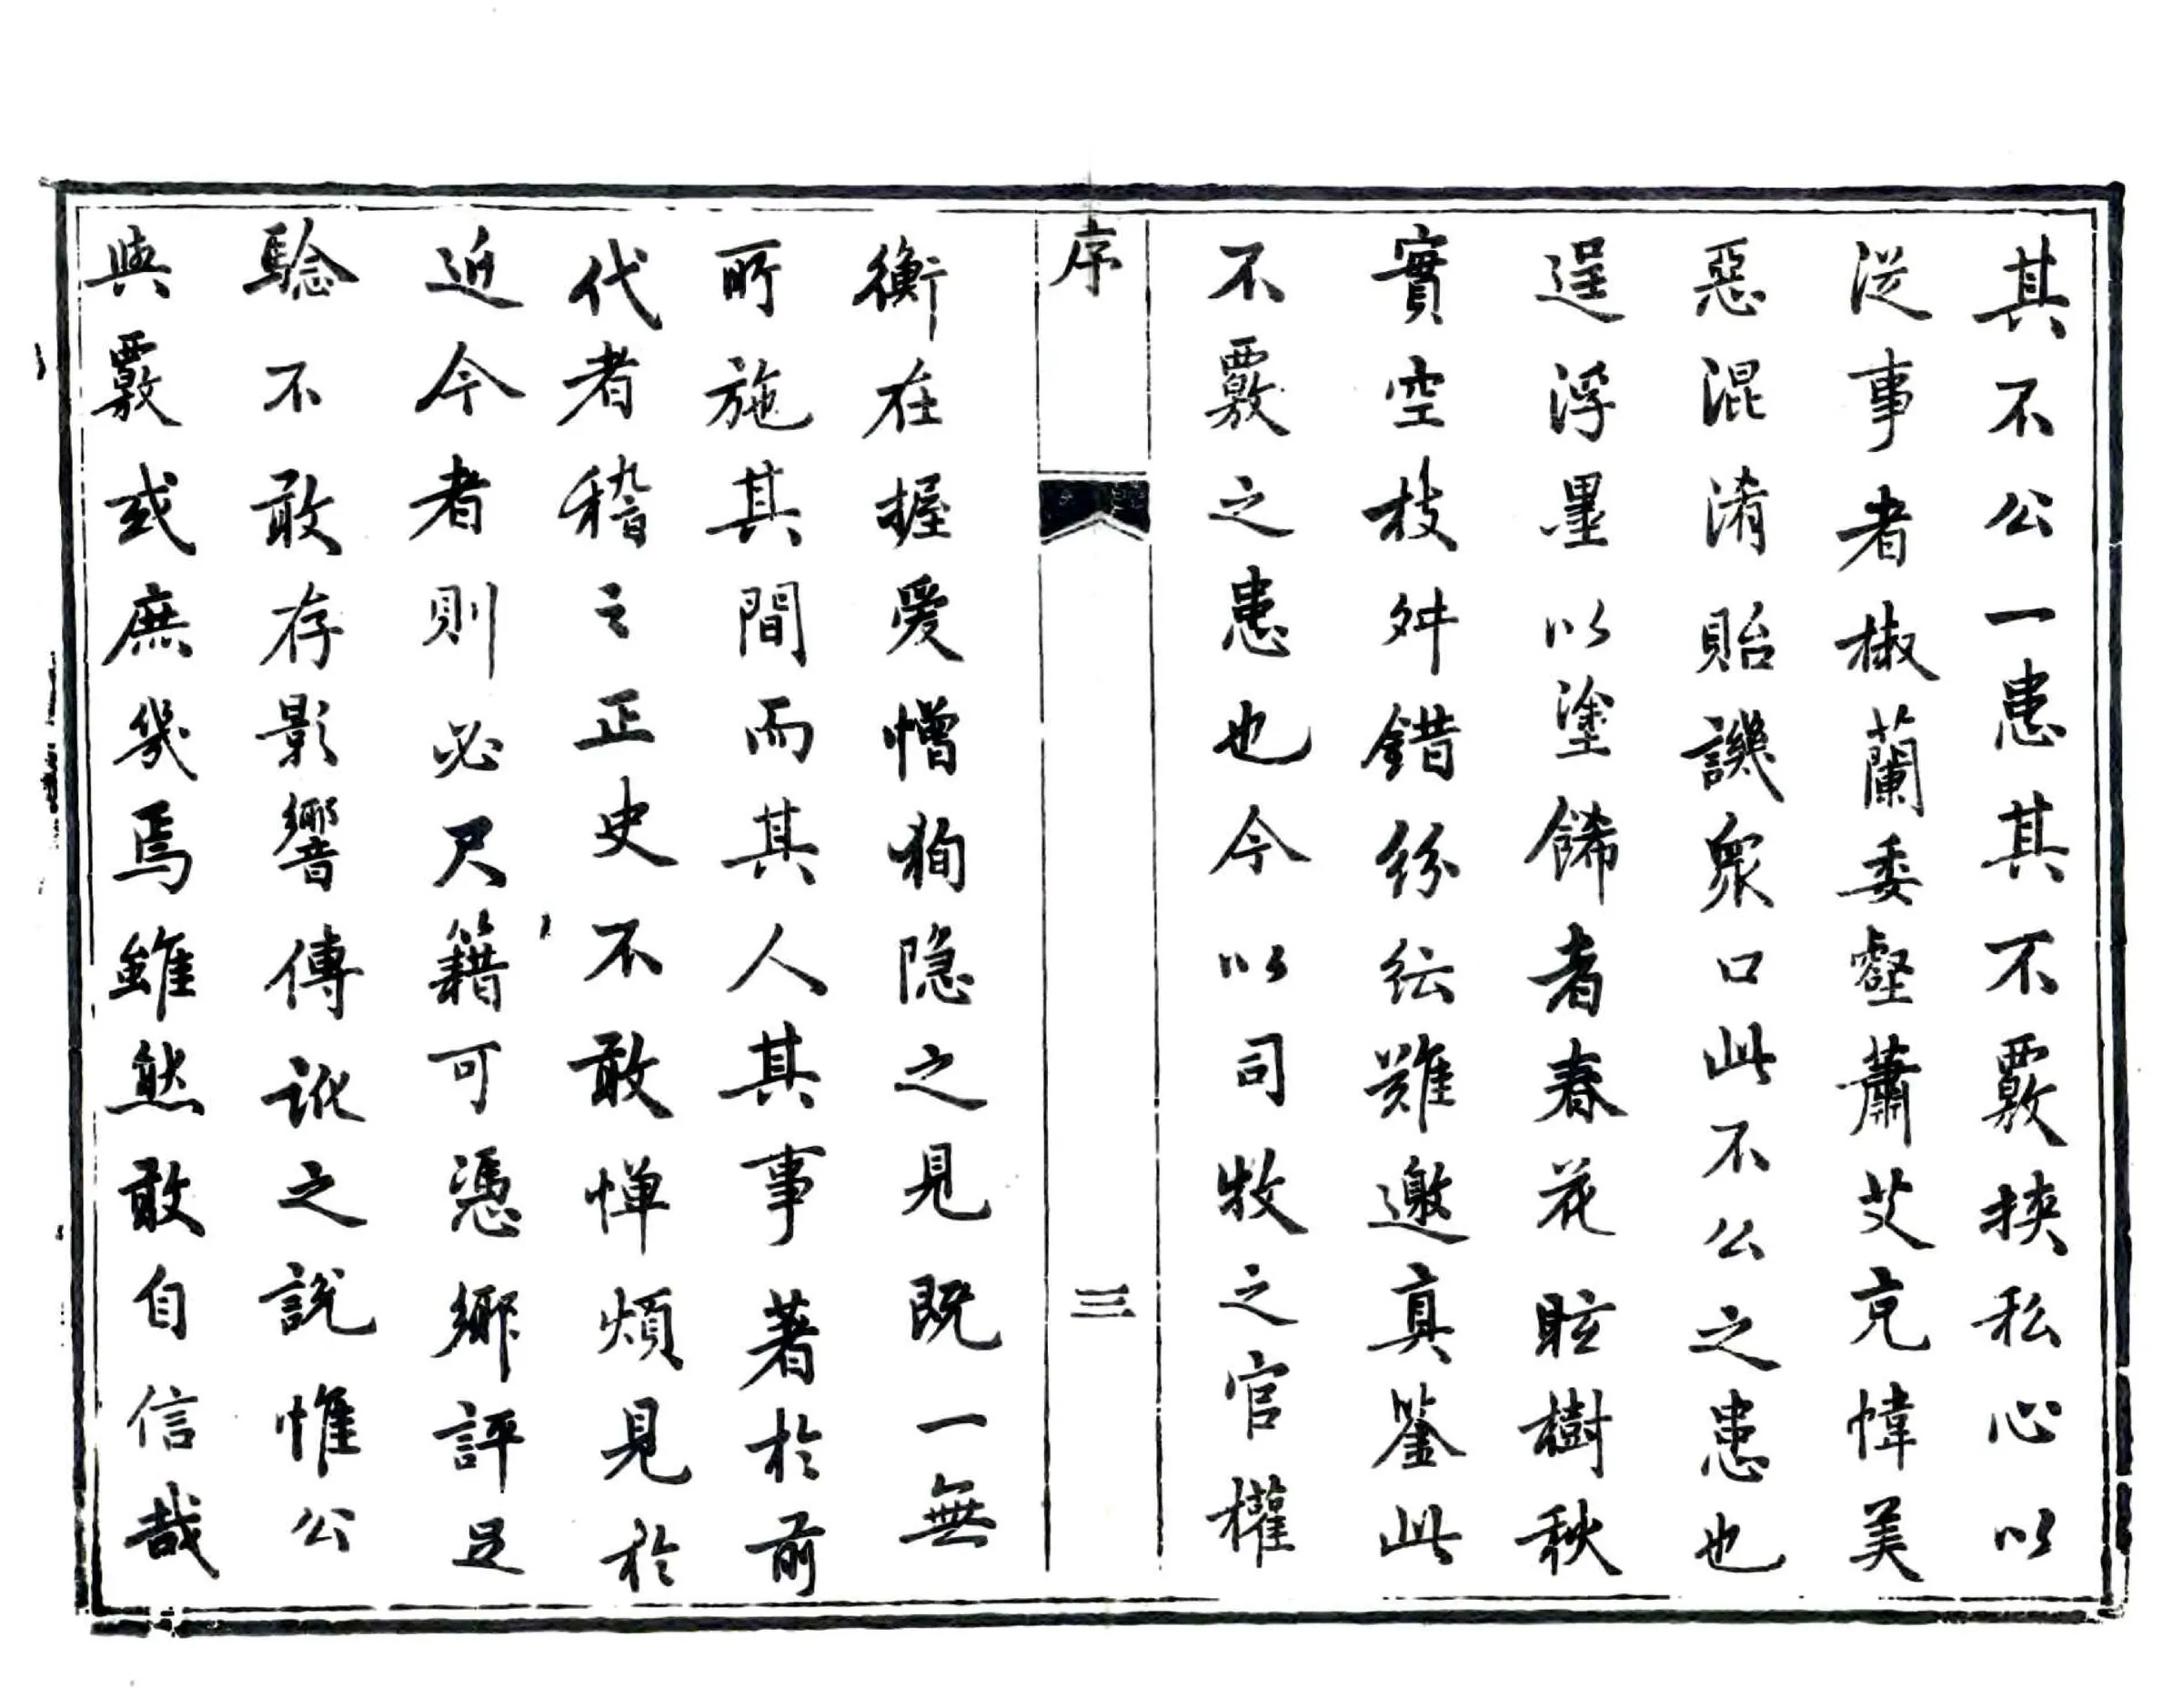 其不公一患其不覈挾私心以
従事者椒蘭委壑蕭艾充幃美
惡混淆貽譏衆口此不公之患也
逞浮墨以塗餙者春花眩樹秋
實空枝舛錯紛紜難邀真鉴此
不覈之患也今以司牧之官權
序
三
衡在握爱憎狥隐之見既一無
所施其間而其人其事著於前
代者稽之正史不敢惮煩見於
近今者則必尺籍可憑鄉評足
驗不敢存影響傳訛之說惟公
與覈或庶幾焉雖然敢自信哉